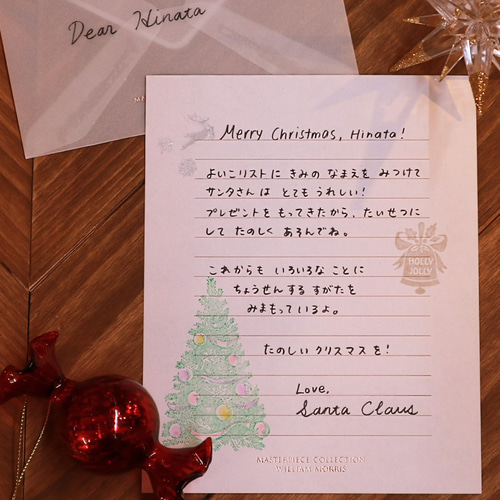 Dear Hinata
Merry Christmas, Hinata!
よいこリストに きみの なまえを みつけて
サンタさんは とても うれしい!
プレゼントを もってきたから、たいせつに
して たのしく あそんでね。
これからも いろいろな ことに
ちょうせんする すがたを
みまもっているよ。
たのしいクリスマスを!
Love,
Santa Claus
HOLLY
JOLLY
MASTERPIECE COLLECTION
WILLIAM MORRIS